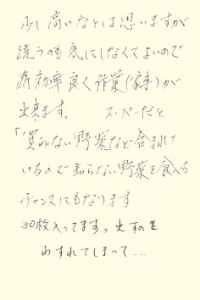 少し高いなとは思いますが
洗うのも気にしなくてよいので
効率良く作業(家事)が
出来ます。 スーパーだと
「買わない野菜など含まれて
いるので知らない野菜を食べる
チャンスにもなります
30枚入ってます。出すのを
わすれてしまって…